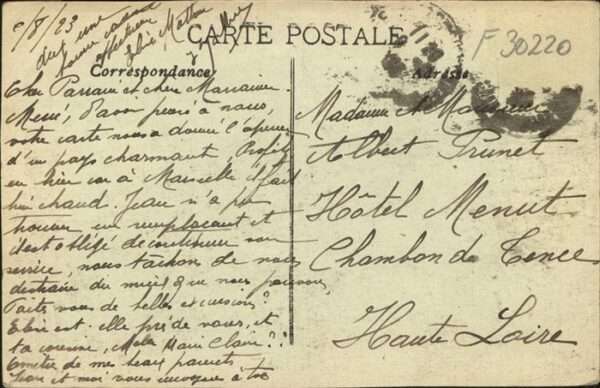 5/8/23
CARTE POSTALE
F 30220
Correspondance
Adresse
Cher Parrain et chère Marraine.
Merci, d'avoir pensé à nous,
votre carte nous a donné l'aperçu
d'un pays charmant. Profitez
en bien car à Marseille il fait
bien chaud. Jean n'a pu
trouver un remplaçant et
il est obligé de continuer son
service, nous tachons de nous
distraire du mieux que nous pouvons,
Faites vous de belles excursions?
Elise est-elle près de vous, et
ta cousine, Marie Claire?
de mes beaux parents
et moi vous
Madame et Monsieur
Albert Prunet
Hôtel Menut
Chambon de Tence
Haute Loire